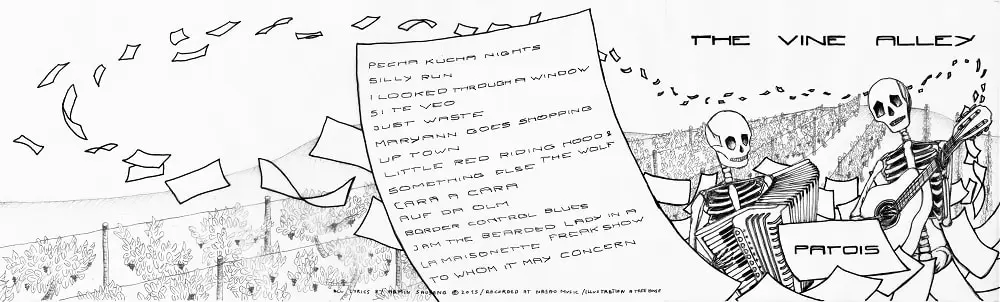 PECHA KUCHA NIGHTS
SILLY RUN
I LOOKED THROUGH A WINDOW
SI TE VEO
JUST WASTE
MARYANN GOES SHOPPING
UP TOWN
LITTLE RED RIDING HOOD &
SOMETHING ELSE THE WOLF
CARA A CARA
AUF DA OLM
BORDER CONTROL BLUES
JAM THE BEARDED LADY IN A
LA MAISONETTE FREAKSHOW
TO WHOM IT MAY CONCERN
ALL LYRICS BY ARMIN © 2015 / RECORDED AT MUSIC / ILLUSTRATION
THE VINE ALLEY
PATOIS